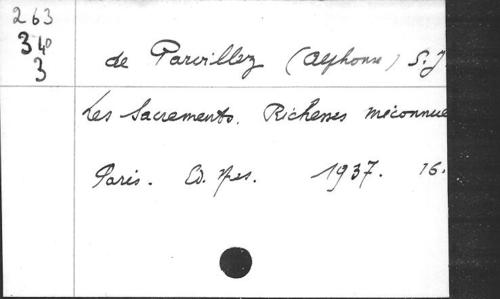 263
3 40
3
de Parvillez (Alphonse) S.J
Les Sacrements. Richesses méconnue
Paris. Ed. Spes. 1937. 16.